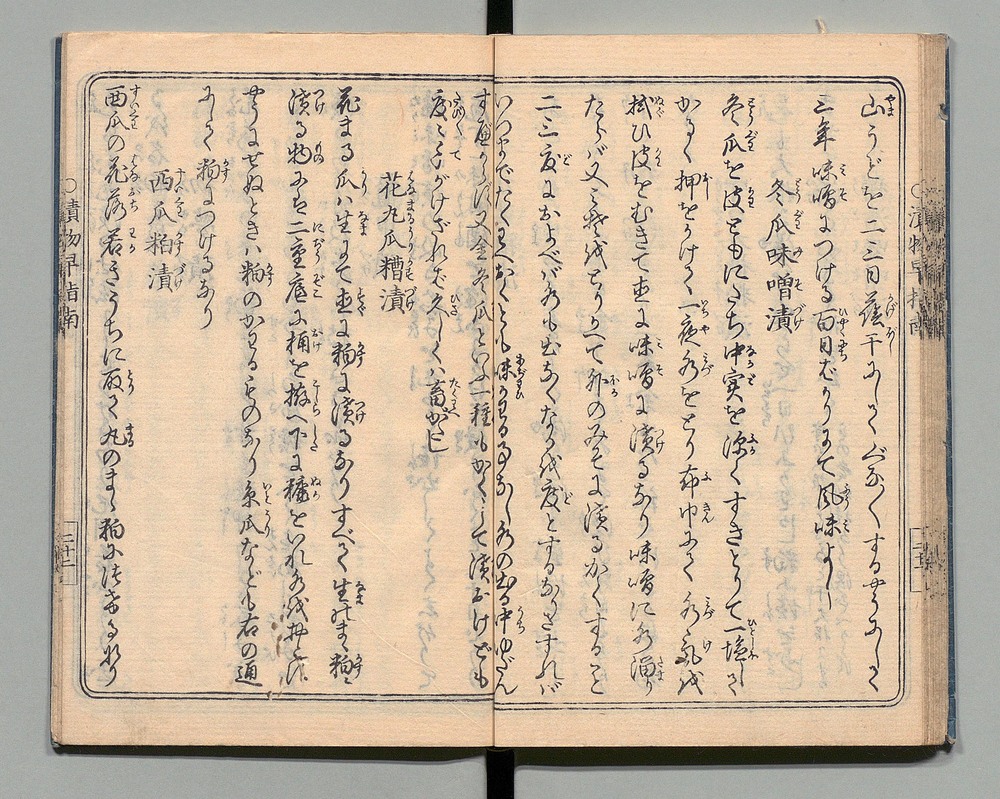 山うどを二三日蔭干にしてべな〱するやうにして
三年味噌につける百日ばかりにて風味よし
冬瓜味噌漬
冬瓜を皮ともにたち中実を深くすきとりて一塩し
かるく押をかけて一夜水をとり布巾にて水気を
拭ひ皮をむきて直に味噌に漬るなり味噌に水溜り
たらば又々とりかへて外のみそに漬るかくすること
二三度におよべば水も出なくなるを度とするなりさすれば
いつまでたくわへおくとも味かわる事なし水の出る中ゆだん
すべからず又金冬瓜といふ一種もかくして漬おけども
度々あげざれば久しくは畜がたし
花丸瓜糟漬
花まる瓜は生にて直に粕に漬るなりすべて生のまゝ粕に
漬る物みな二重底に桶を拵へ下に糠をいれ水を
やうにせぬときは粕のかわるものなり糸瓜なども右の通
にして粕につけるなり
西瓜粕漬
西瓜の花落若きうちに取て丸のまゝ粕に漬るなり
○漬物早指南
二十二